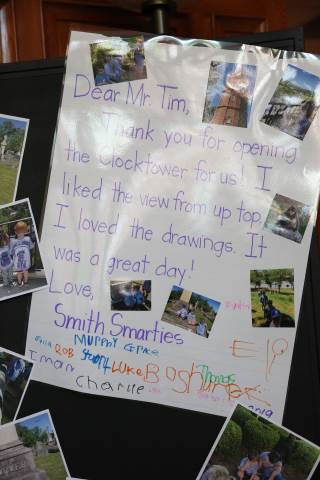 Dear Mr. Tim,
Thank you for opening
the Clocktower for us! I
liked the view from up top.
I loved the drawings. It
was a great day!
Love,
Smith Smarties
MURPHY
ROB
LUKE
Thomas
Iman
Charlie